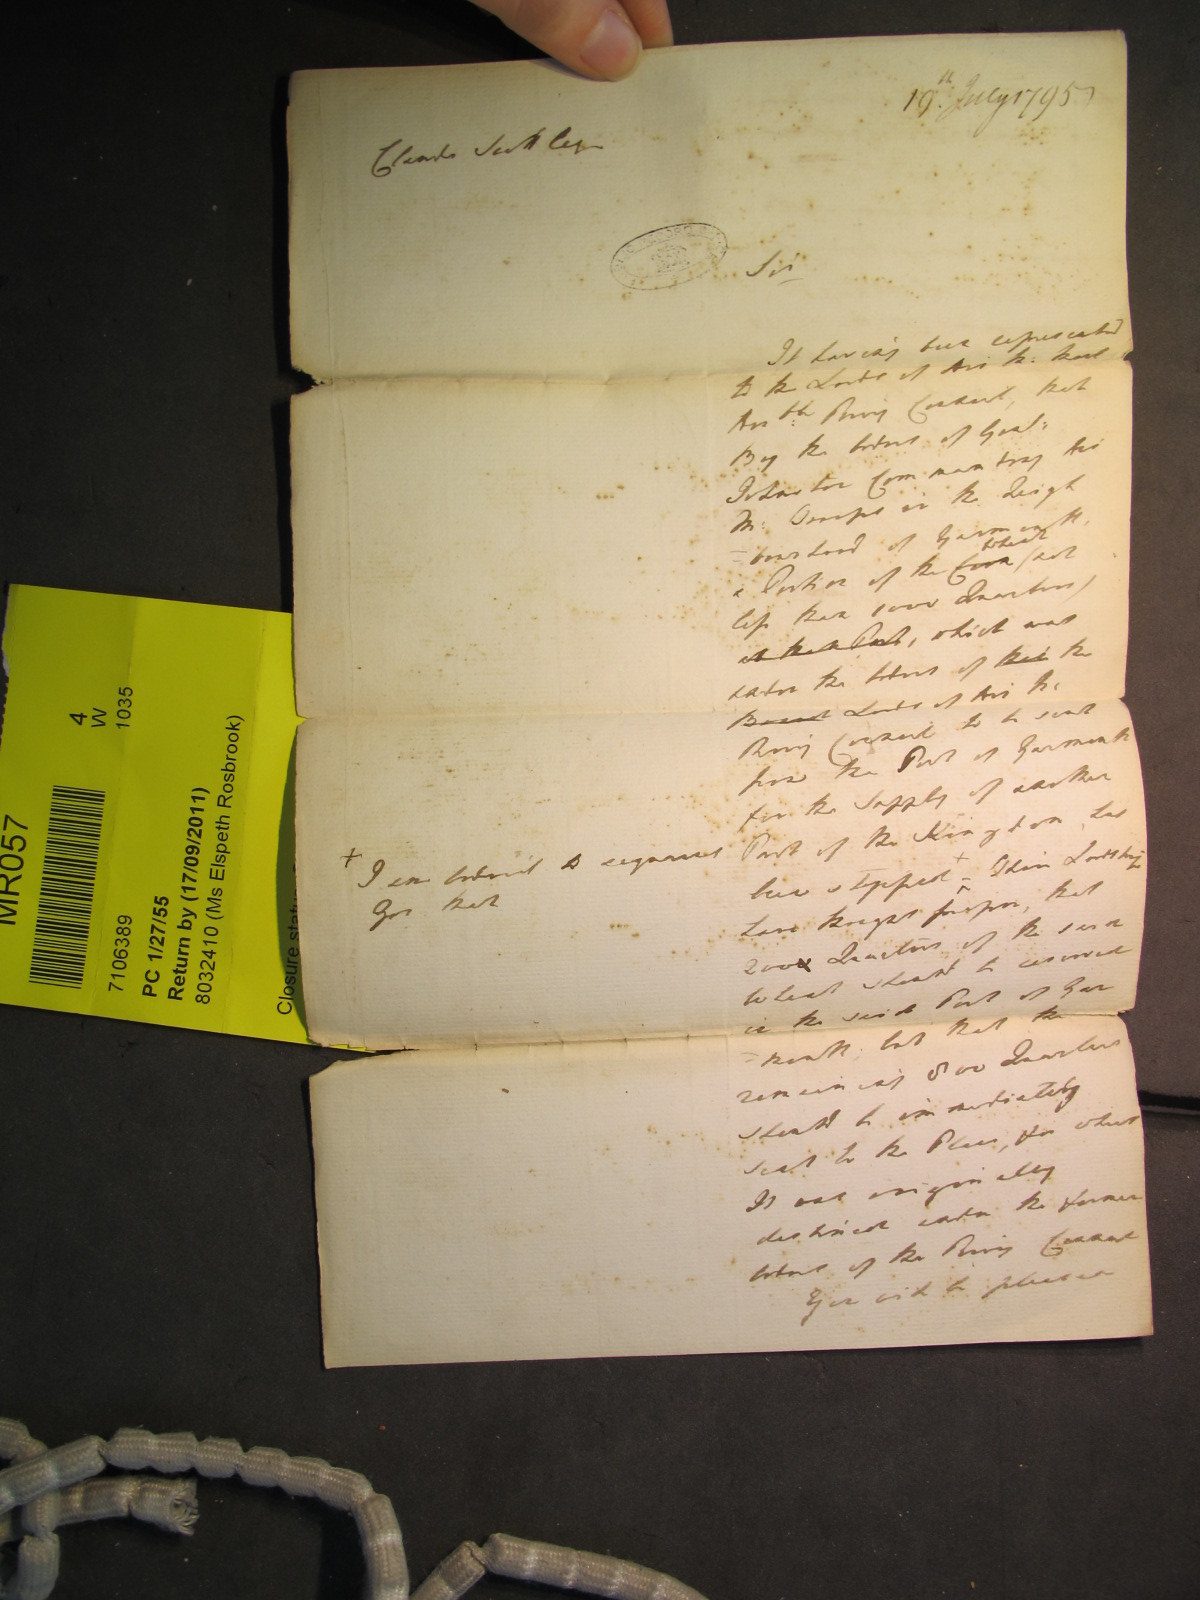 19th July 1795
Claude Scott Esqr
Sir
It having been represented
to the Lords of His M: Most
Honble Privy Council, that
By the orders of Genl:
Johnston Commanding His
M: Troops in the Neigh
=bourhood of Yarmouth,
a Portion of the Corn Wheat (not
less than 1000 Quarters)
at that Port, which was
under the orders of their the
Board Lords of His M:
Privy Council to be sent
from the Port of Yarmouth
for the Supply of another
Part of the Kingdom, has
been stopped + Their Lordships
have thought proper, that
200 Quarters of the said
Wheat should be reserved
in the said Port of Yar
=mouth, but that the
remaining 800 Quarters
should be immediately
sent to the Place, for which
It was originally
destined under the former
orders of the Privy Council
You will be pleased
+ I am ordered to acquaint
You that
MR057
4
W
1035
7106389
PC 1/27/55
Return by (17/09/2011)
8032410 (Ms Elspeth Rosbrook)
Closure status